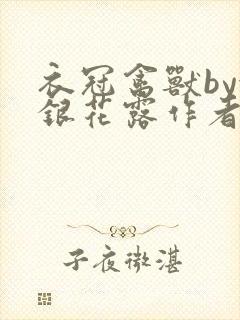 衣冠禽獸by
銀花露作者
子夜微湛